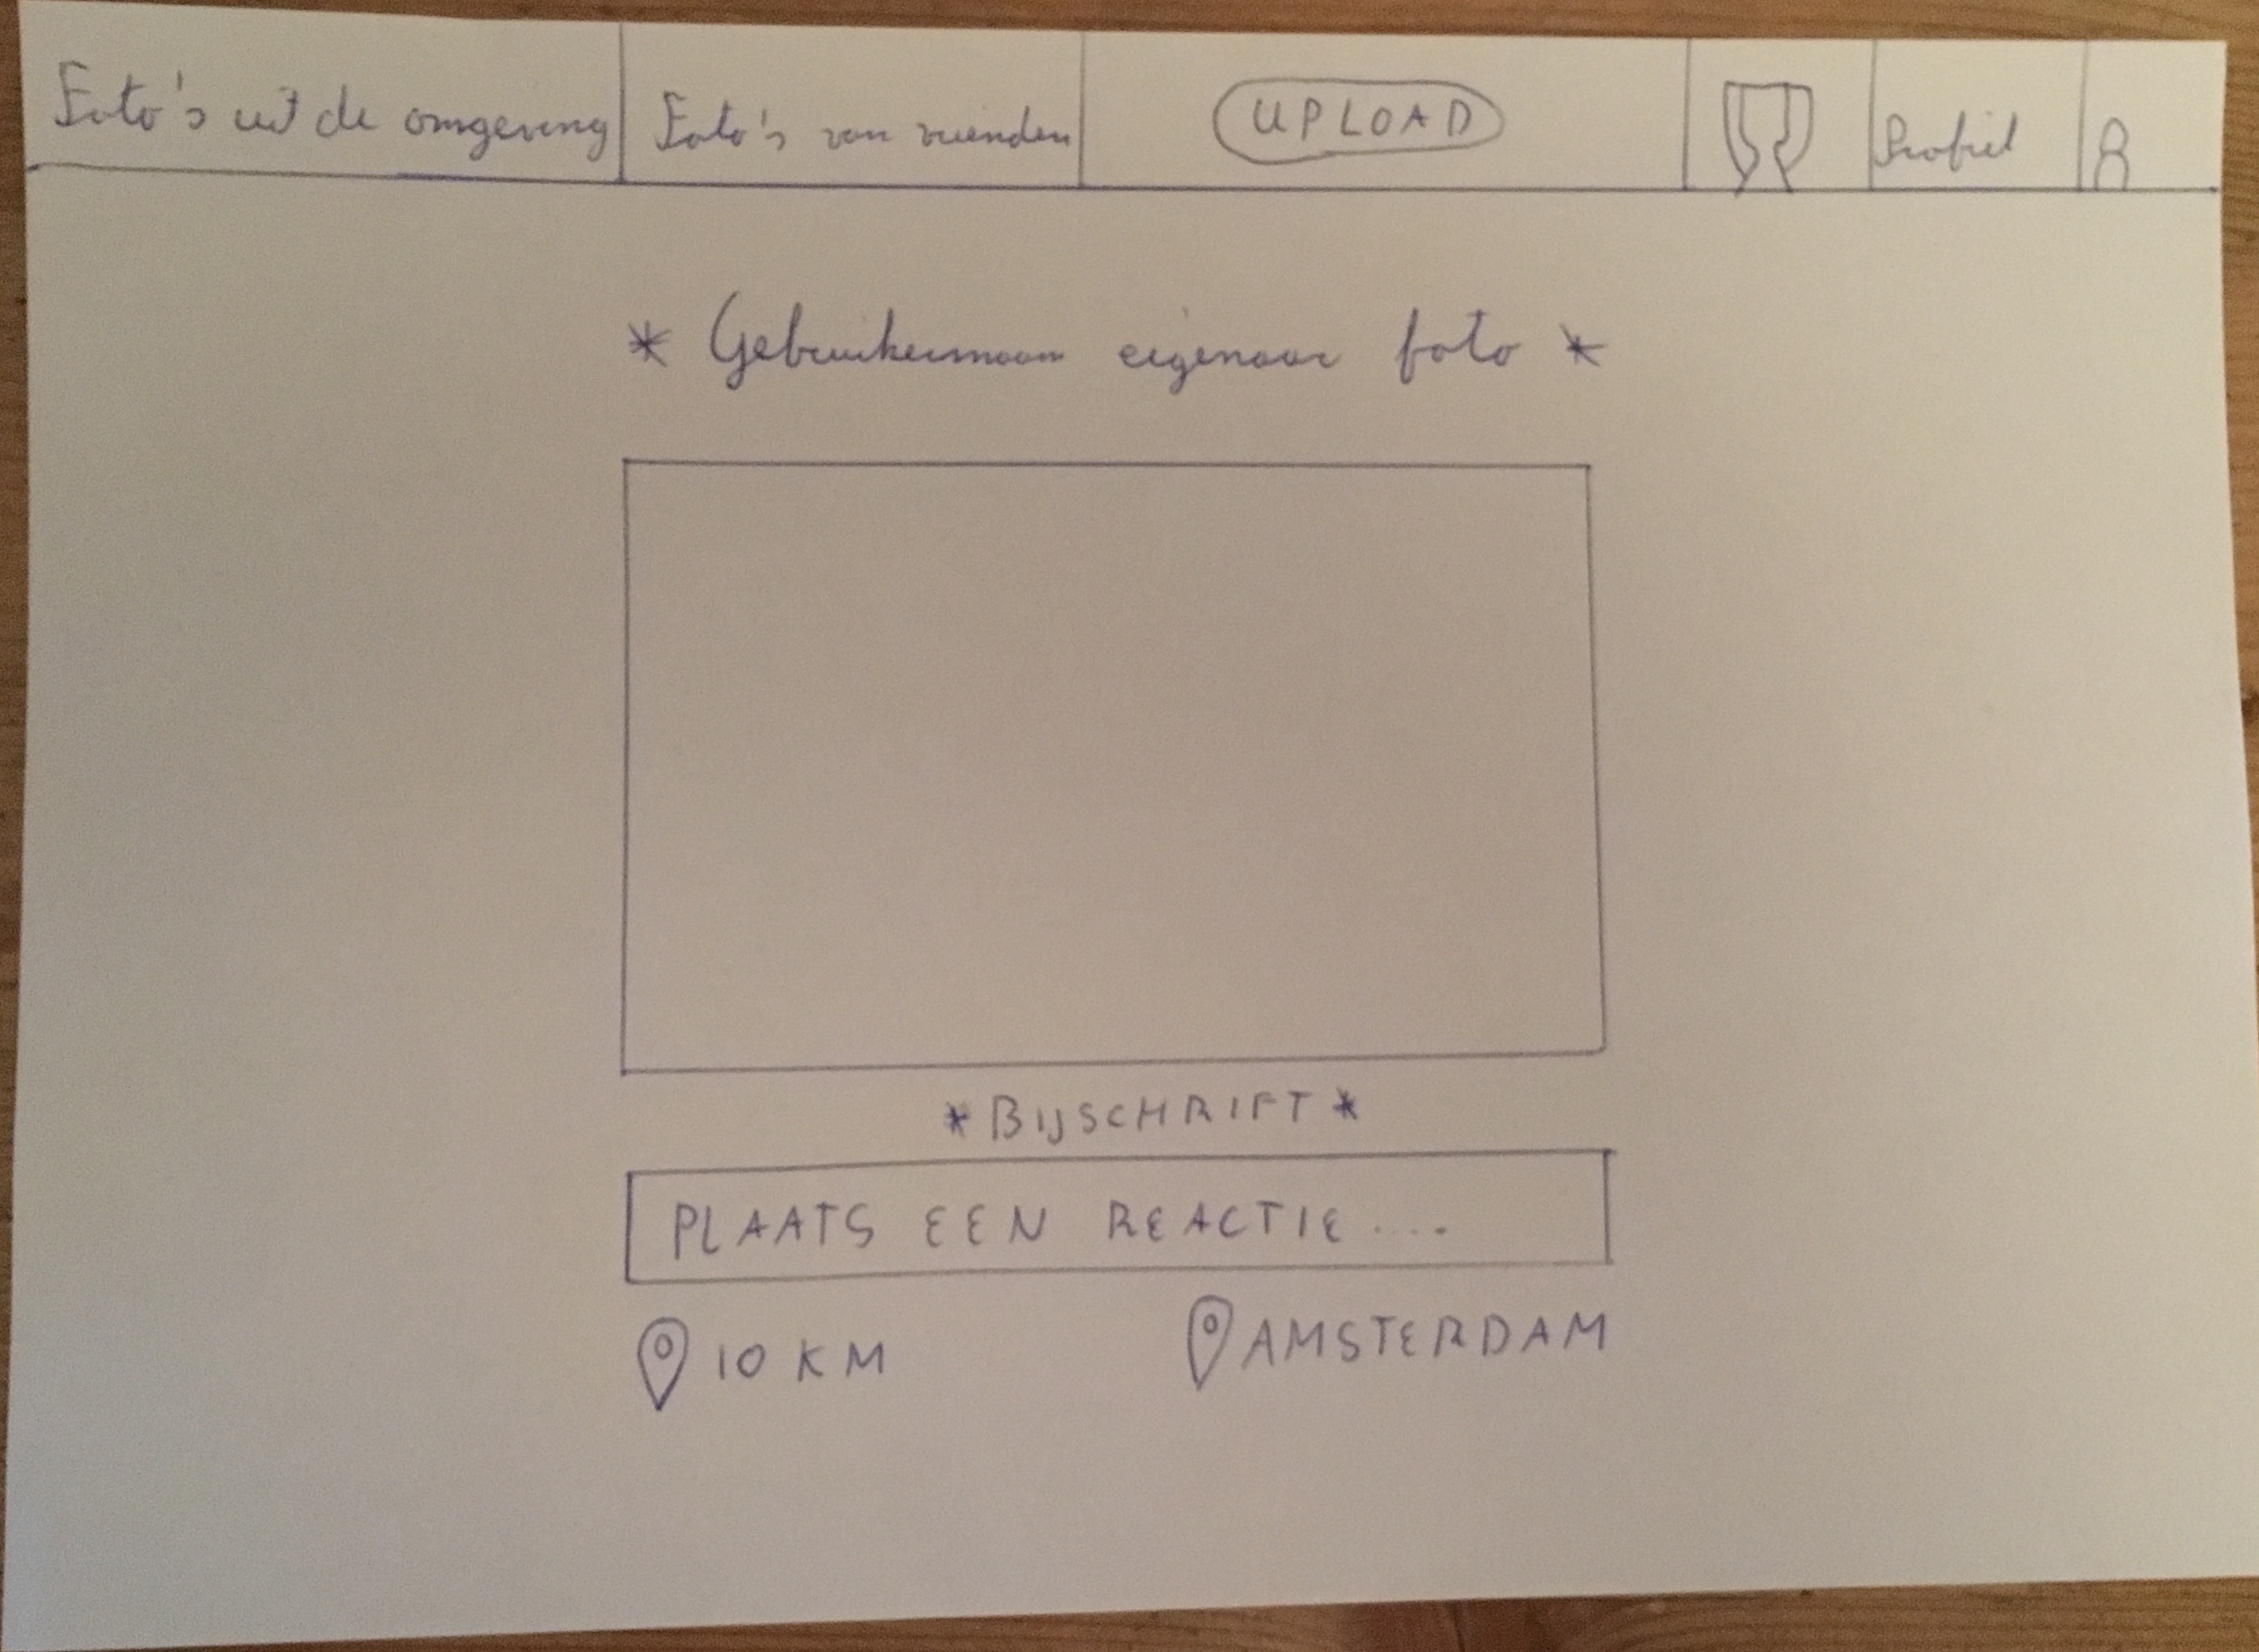 Foto's uit de omgeving
Foto's van vrienden
UPLOAD
Profiel
* Gebruikersnaam eigenaar foto *
* BIJSCHRIFT *
PLAATS EEN REACTIE....
10 KM
AMSTERDAM